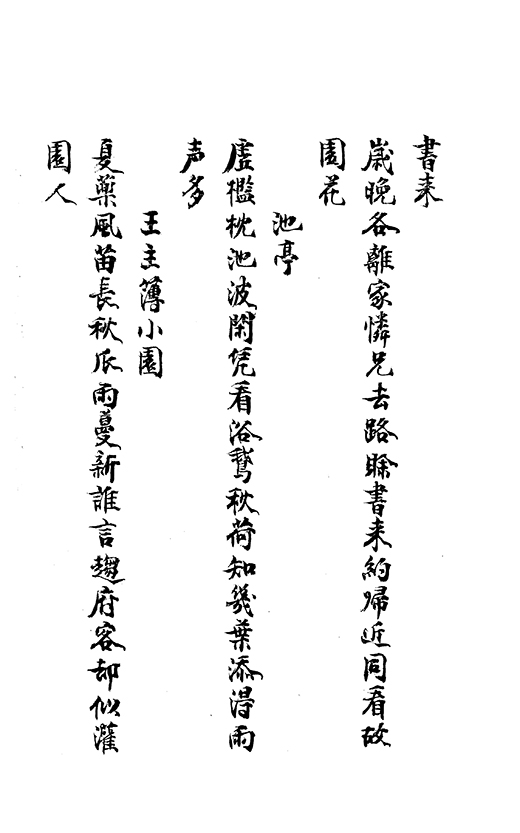 書来
歳晩各離家憐兄去路賖書来約帰近同看故
園花
池亭
虚檻枕池波閑凭看浴鵞秋荷知幾葉添得雨
声多
王主簿小園
夏薬風苗長秋瓜雨蔓新誰言趨府客却似灌
園人